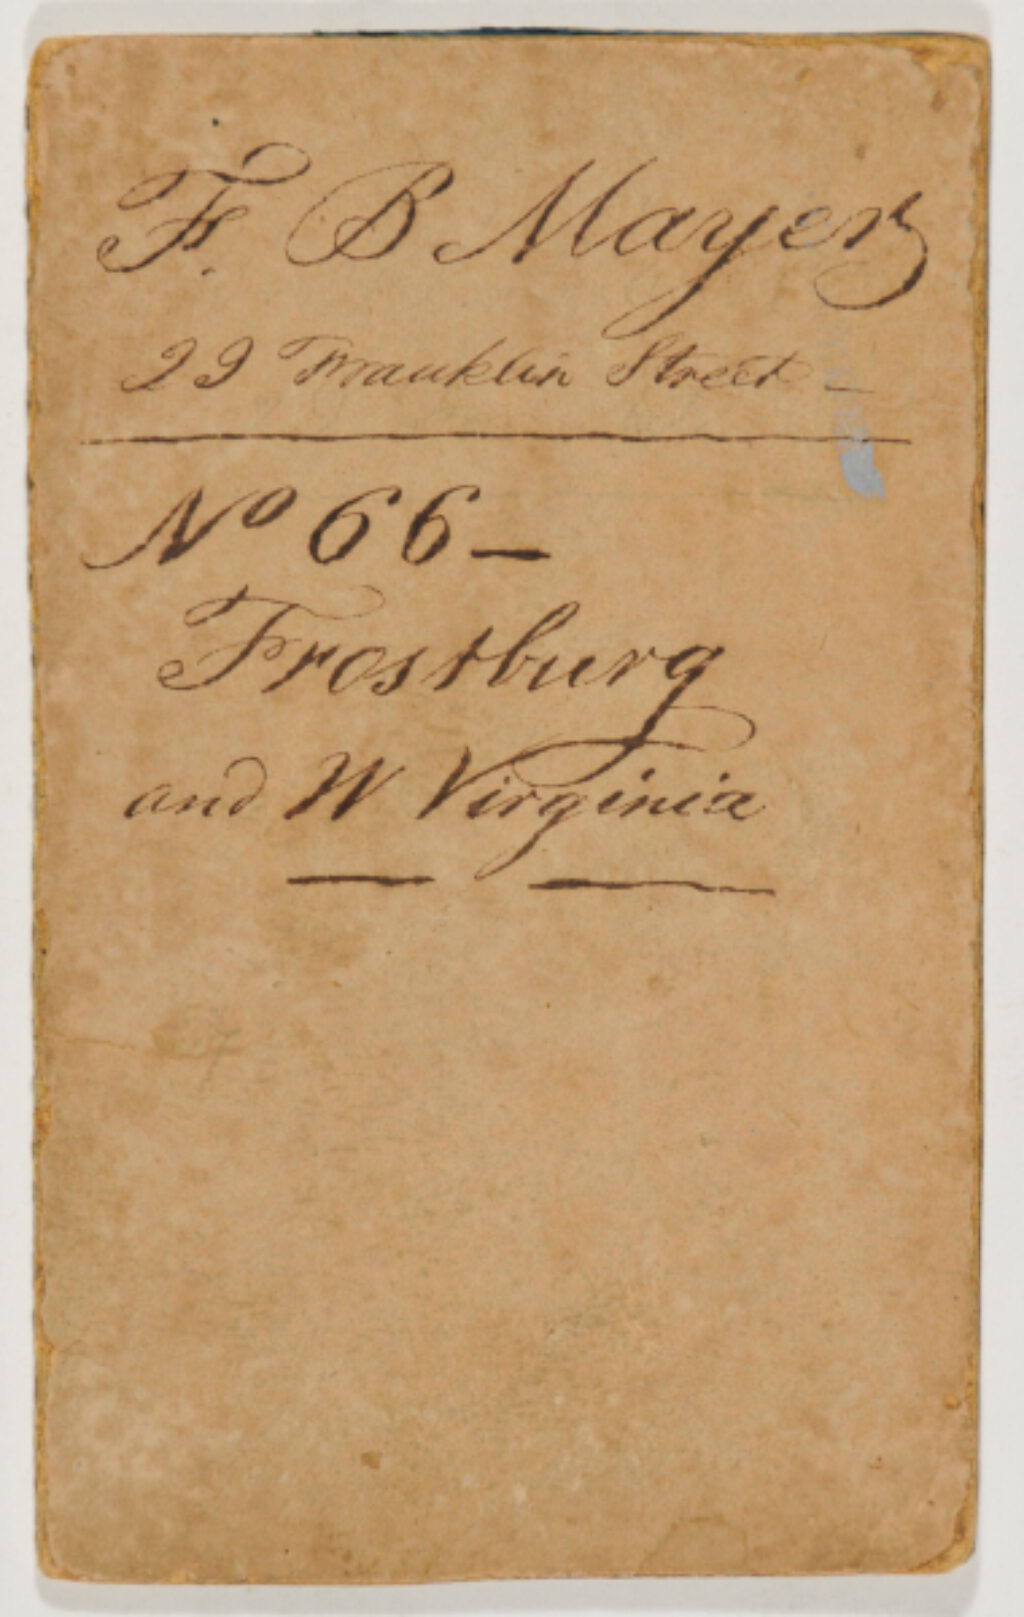 F. B Mayer
29 Franklin Street -
No 66 -
Frostburg
and W Virginia